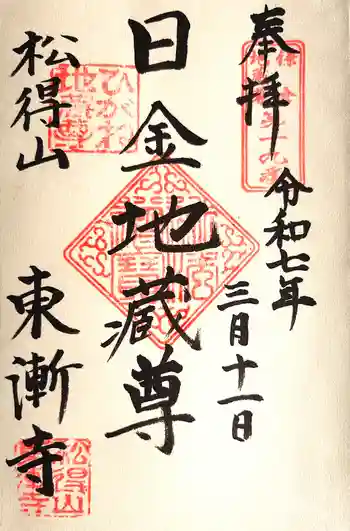 奉拝
令和七年
三月十一日
日金地蔵尊
ひがね
地蔵尊
松得山
東漸寺
松得山